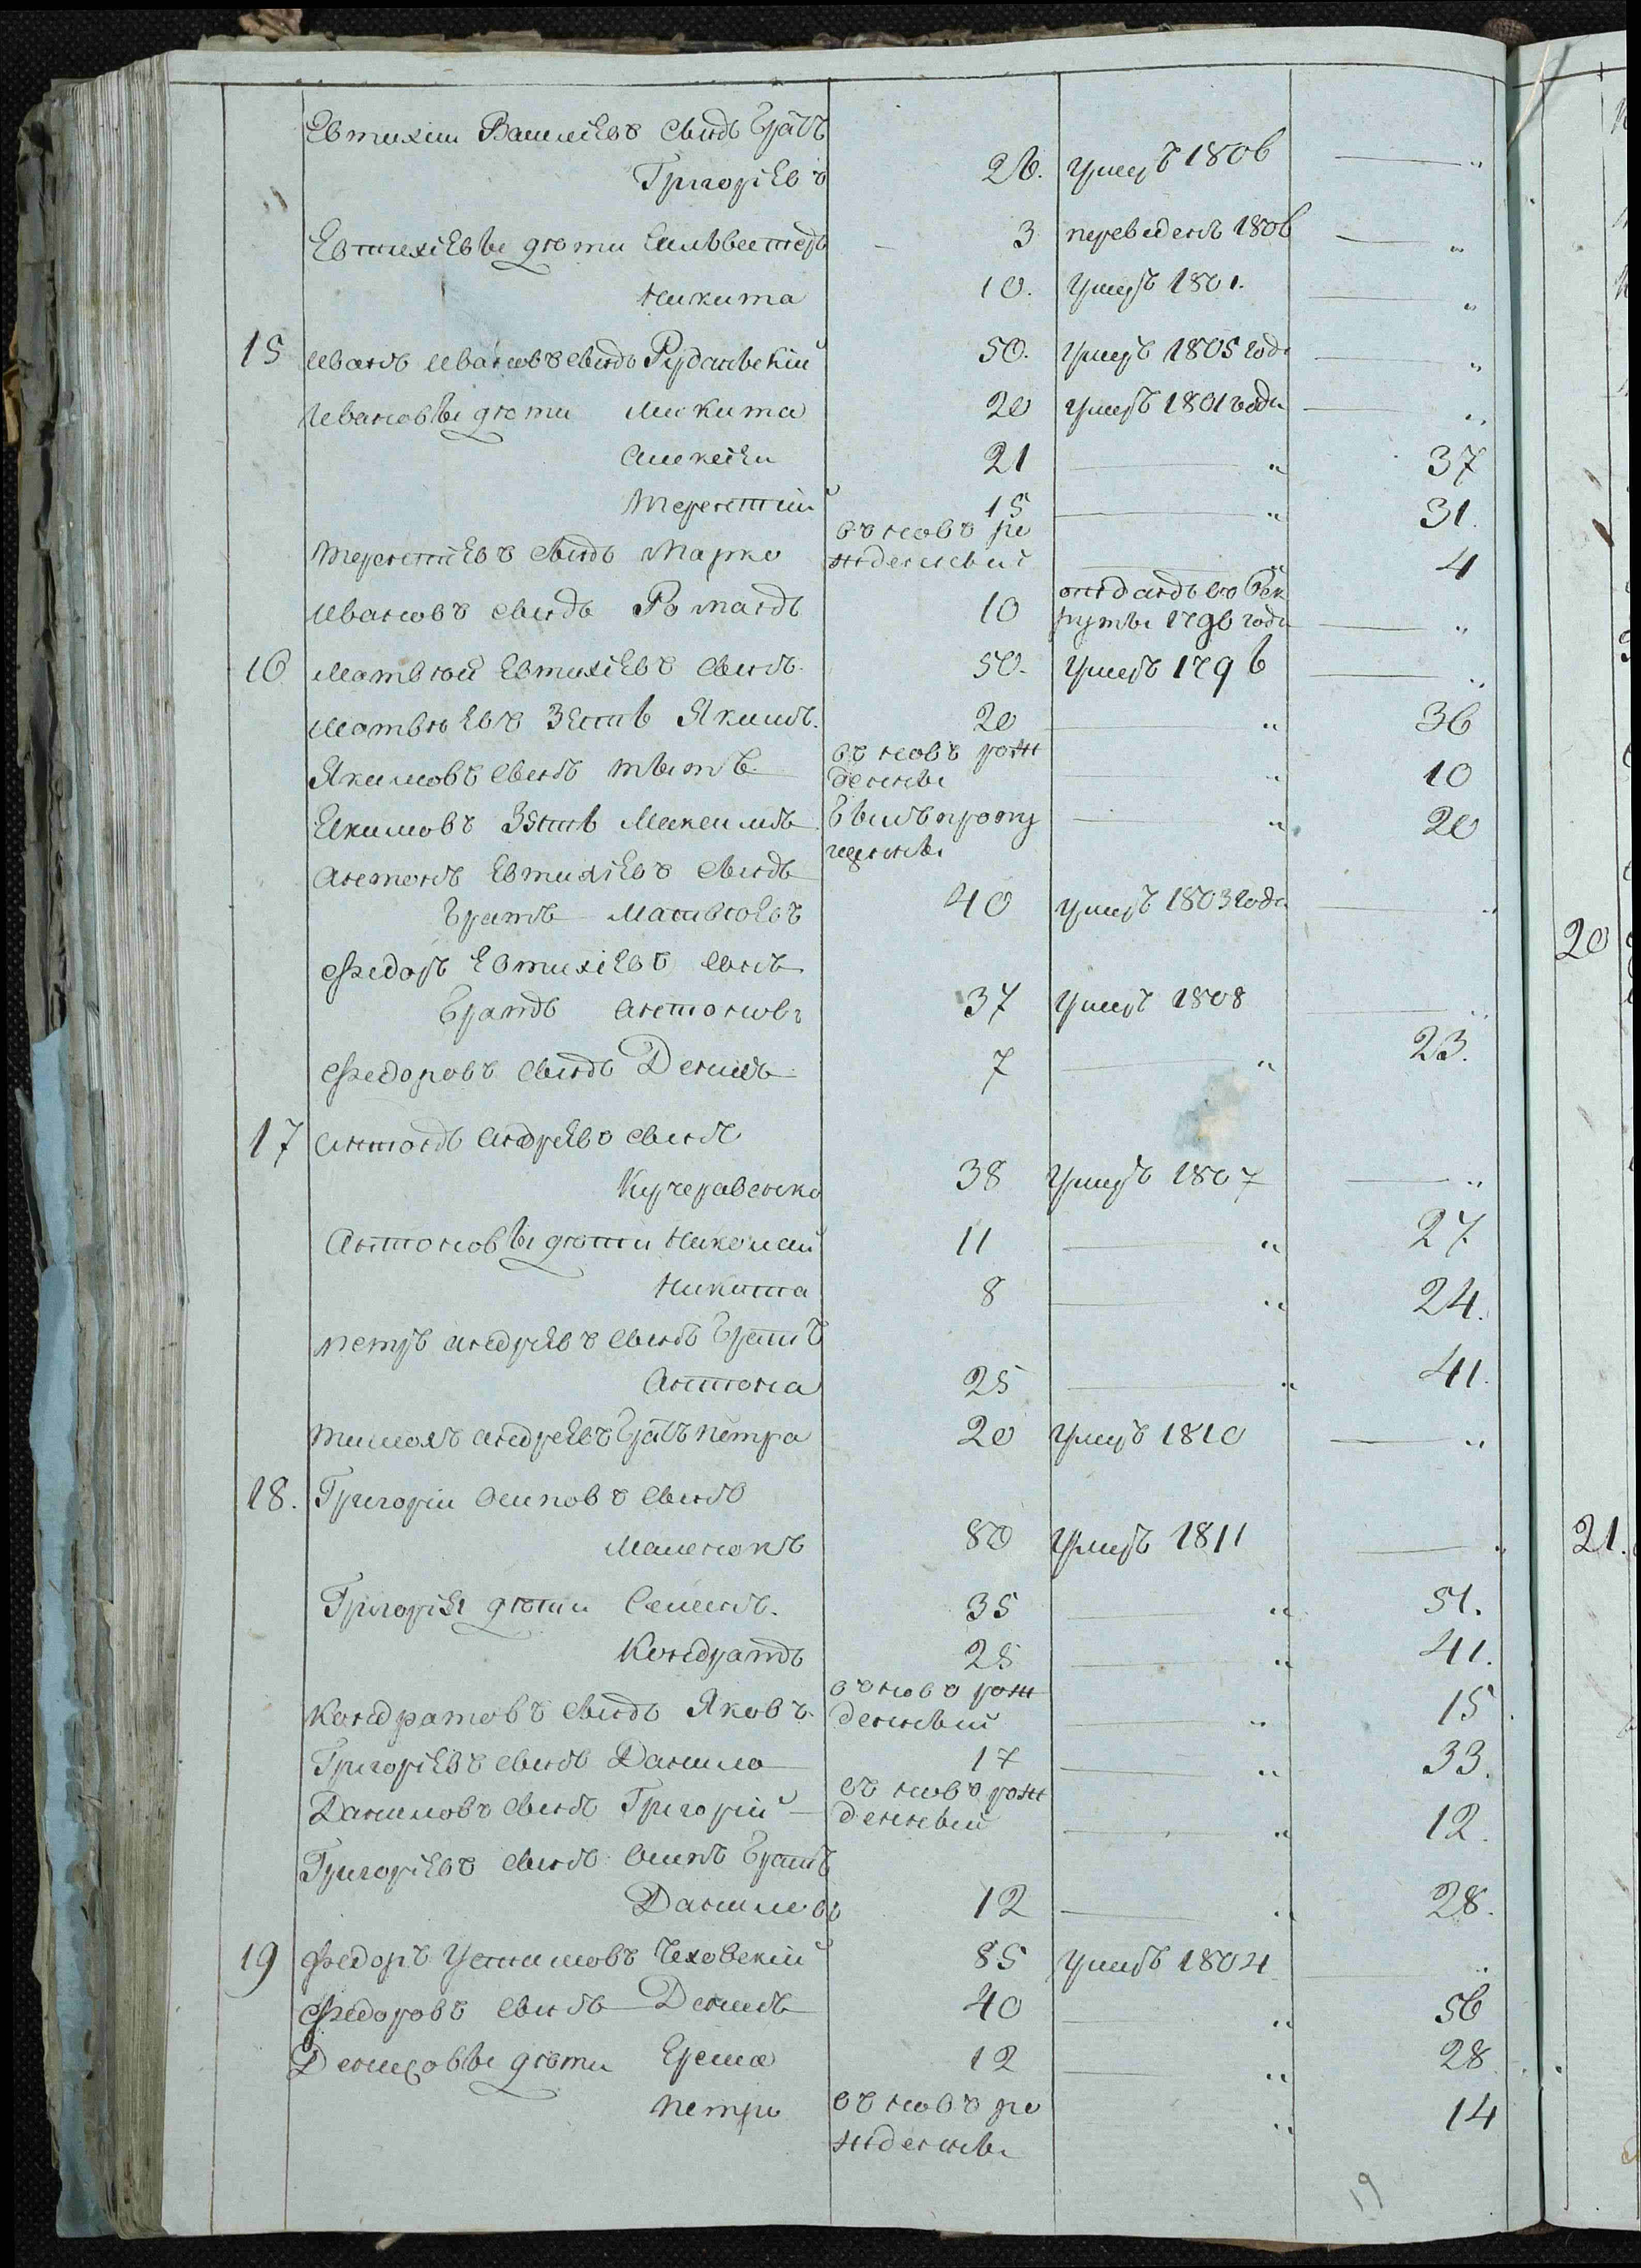 Евтихий Василіевъ сынъ братъ
Григоріевъ 26. умеръ 1806 — „
Евтихіевы дѣти Сильвестеръ — 3 переведенъ 1806 — „
Никита 10. умеръ 1801. — „
15 Иванъ Ивановъ сынъ Рудановскій 50. умеръ 1805 года — „
Ивановы дѣти Микита 20 умеръ 1801 года — „
Алексѣй 21 — „ 37
Терентій 15 — „ 31.
Терентіевъ сынъ Марко въ новъ ро
жденный — „ 4
Ивановъ сынъ Романъ 10 отданъ въ рек
руты 1796 года — „
16 Матвѣй Евтихіевъ сынъ 50. умеръ 1796 — „
Матвѣевъ зять Якимъ. 20 — „ 36
Якимовъ сынъ Титъ въ новъ рож
денны — „ 10
Якимовъ зять Максимъ былъ пропу
щенны — „ 20
Антонъ Евтихіевъ сынъ
братъ Матвѣевъ 40 умеръ 1803 года — „
Федоръ Евтихіевъ сынъ
братъ Антоновъ 37 умеръ 1808 — „
Федоровъ сынъ Денисъ 7 — „ 23.
17 Антонъ Андреевъ сынъ
Кучеравенко 38 умеръ 1807 — „
Антоновы дѣти Николай 11 — „ 27.
Никита 8 — „ 24.
Петръ Андреевъ сынъ братъ
Антона 25 — „ 41.
Тимохъ Андреевъ братъ Петра 20 умеръ 1810 — „
18. Григорій Осиповъ сынъ
Маленюкъ 80 умеръ 1811 — „
Григорія дѣти Семенъ. 35 — „ 51.
Кондратъ 25 — „ 41.
Кондратовъ сынъ Яковъ въ новъ рож
денный — „ 15
Григоріевъ сынъ Данило 17 — „ 33.
Даниловъ сынъ Григорій въ новъ рож
денный — „ 12.
Григоріевъ сынъ Осипъ братъ
Даниловъ 12 — „ 28.
19 Федоръ Устимовъ Чеховскій 85 умеръ 1804 — „
Федоровъ сынъ Денисъ 40 — „ 56
Денисовы дѣти Ерема 12 — „ 28
Петро въ новъ ро
жденны — „ 14
19
20
21.